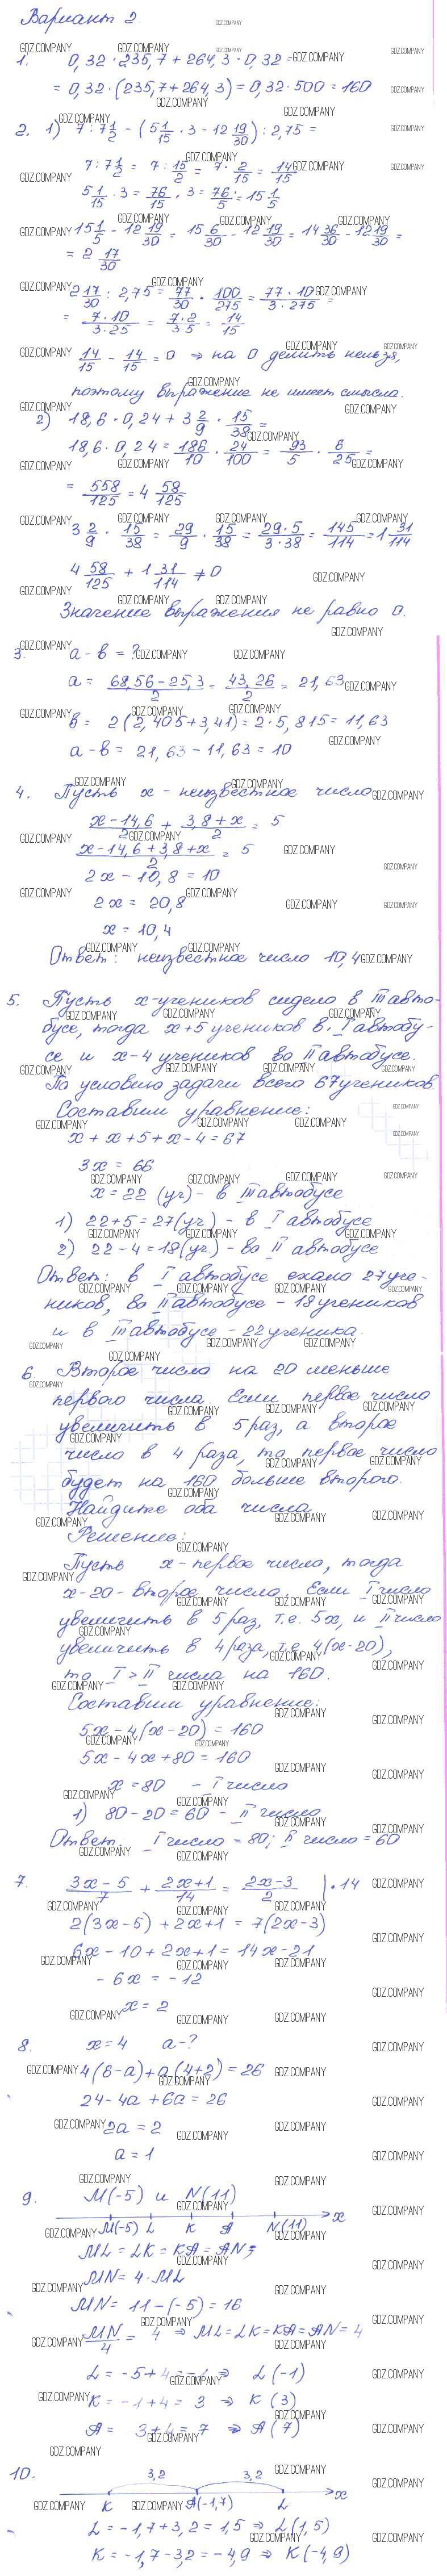 Вариант 2
1. 0,32 · 235,7 + 264,3 · 0,32 =
= 0,32 · (235,7 + 264,3) = 0,32 · 500 = 160
2. 1) 7 : 7 1/2 - (5 1/15 · 3 - 12 19/30) : 2,75 =
7 : 7 1/2 = 7 : 15/2 = 7 · 2/15 = 14/15
5 1/15 · 3 = 76/15 · 3 = 76/5 = 15 1/5
15 1/5 - 12 19/30 = 15 6/30 - 12 19/30 = 14 36/30 - 12 19/30 =
= 2 17/30
2 17/30 : 2,75 = 77/30 · 100/275 = 77 · 10/3 · 275 =
= 7 · 10/3 · 25 = 7 · 2/3 5 = 14/15
14/15 - 14/15 = 0 ⇒ на 0 делить нельзя,
поэтому выражение не имеет смысла.
2) 18,6 · 0,24 + 3 2/9 · 15/38 =
18,6 · 0,24 = 186/10 · 24/100 = 93/5 · 6/25 =
= 558/125 = 4 58/125
3 2/9 · 15/38 = 29/9 · 15/38 = 29 · 5/3 · 38 = 145/114 = 1 31/114
4 58/125 + 1 31/114 ≠ 0
Значение выражения не равно 0.
3. a - b = ?
a = 68,56 - 25,3/2 = 43,26/2 = 21,63
b = 2(2,405 + 3,41) = 2 · 5,815 = 11,63
a - b = 21,63 - 11,63 = 10
4. Пусть x - неизвестное число
x - 14,6/2 + 3,8 + x/2 = 5
x - 14,6 + 3,8 + x/2 = 5
2x - 10,8 = 10
2x = 20,8
x = 10,4
Ответ: неизвестное число 10,4
5. Пусть x-учеников сидело в III авто-
бусе, тогда x+5 учеников в I автобу-
се и x-4 учеников во II автобусе.
По условию задачи всего 67 учеников
Составим уравнение:
x + x + 5 + x - 4 = 67
3x = 66
x = 22 (уч) - в III автобусе
1) 22 + 5 = 27 (уч) - в I автобусе
2) 22 - 4 = 18 (уч) - во II автобусе
Ответ: в I автобусе ехало 27 уче-
ников, во II автобусе - 18 учеников
и в III автобусе - 22 ученика.
6. Второе число на 20 меньше
первого числа. Если первое число
увеличить в 5 раз, а второе
число в 4 раза, то первое число
будет на 160 больше второго.
Найдите оба числа
Решение:
Пусть x - первое число, тогда
x-20 - второе число. Если I число
увеличить в 5 раз, т.е. 5x, и II число
увеличить в 4 раза, т.е. 4(x-20),
то I > II числа на 160.
Составим уравнение:
5x - 4(x - 20) = 160
5x - 4x + 80 = 160
x = 80 - I число
1) 80 - 20 = 60 - II число
Ответ. I число = 80; II число = 60
7. 3x - 5/7 + 2x + 1/14 = 2x - 3/2 | · 14
2(3x - 5) + 2x + 1 = 7(2x - 3)
6x - 10 + 2x + 1 = 14x - 21
- 6x = - 12
x = 2
8. x = 4 a - ?
4(6 - a) + a(4 + 2) = 26
24 - 4a + 6a = 26
2a = 2
a = 1
9. M(-5) и N(11)
M(-5) L K A N(11) x
ML = LK = KA = AN;
MN = 4 · ML
MN = 11 - (-5) = 16
MN/4 = 4 ⇒ ML = LK = KA = AN = 4
L = -5 + 4 = -1 ⇒ L(-1)
K = -1 + 4 = 3 ⇒ K(3)
A = 3 + 4 = 7 ⇒ A(7)
10. 3,2 3,2
K A(-1,7) L x
L = -1,7 + 3,2 = 1,5 ⇒ L(1,5)
K = -1,7 - 3,2 = -4,9 ⇒ K(-4,9)